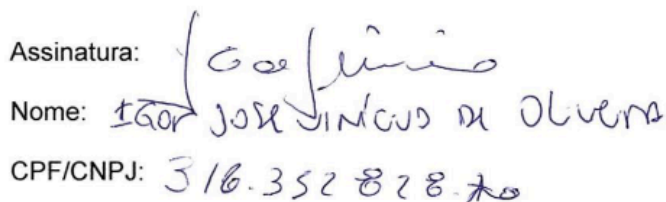 Assinatura:
Nome: IGOR JOSE VINÍCIUS DE OLIVEIRA
CPF/CNPJ: 316.352 828.